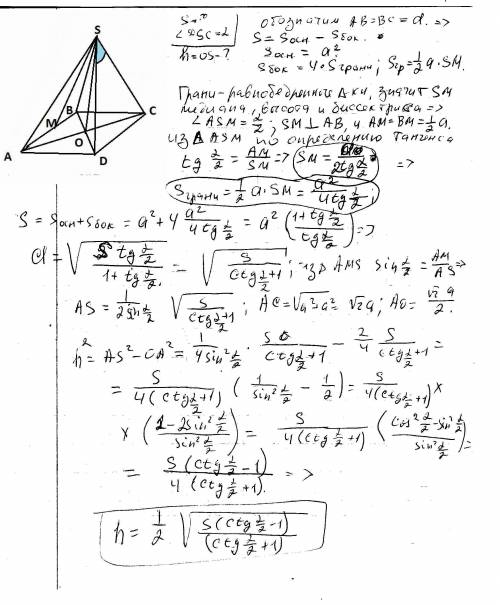 S
B
C
M
O
A
D
S="
∠DSC=α
h=OS-?
обозначим AB=BC=a. =>
S=Sосн - Sбок.
Sосн = a²
Sбок=4·Sграни; Sгр=½a·SM.
Грани-равнобедренные Δки, значит SM
медиана, высота и биссектриса =>
∠ASM=α/2; SM⊥AB, и AM=BM=½a.
из ΔASM по определению тангенса
tg α/2 = AM/SM => SM = a/(2tg α/2) =>
Sграни=½a·SM= a²/(4tg α/2);
S=Sосн+Sбок= a²+4 a²/(4tg α/2) = a²((1+tg α/2)/(tg α/2)) =>
a=√(S tg α/2/(1+tg α/2)) = √(S/(ctg α/2+1)); из AMS sin α/2 = AM/AS =>
AS= 1/(2sin α/2) √(S/(ctg α/2+1)); AC=√(a²+a²)=√2a; AO=√2a/2.
h²=AS²-OA²= 1/(4sin² α/2) · S/(ctg α/2+1) - 2/4 S/(ctg α/2+1) =
= S/(4(ctg α/2+1)) (1/(sin² α/2) - 1/2) = S/(4(ctg α/2+1)) ×
× ((1-2sin² α/2)/(sin² α/2)) = S/(4(ctg α/2+1)) ((cos² α/2-sin² α/2)/(sin² α/2)) =
= S(ctg α/2-1)/(4(ctg α/2+1)) =>
h= 1/2 √(S(ctg α/2-1)/(ctg α/2+1))